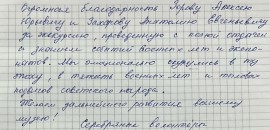 Огромная благодарность Гурову Алексею
Юрьевичу и Виталию Евгеньевичу
за экскурсию, проведенную с полной отдачей
и знанием событий военных лет и экспо-
натов. Мы эмоционально окунулись в ту
эпоху, в тяжесть военных лет и
подвигов советского народа.
Желаем дальнейшего развития вашему
музею!
Серебряные волонтеры